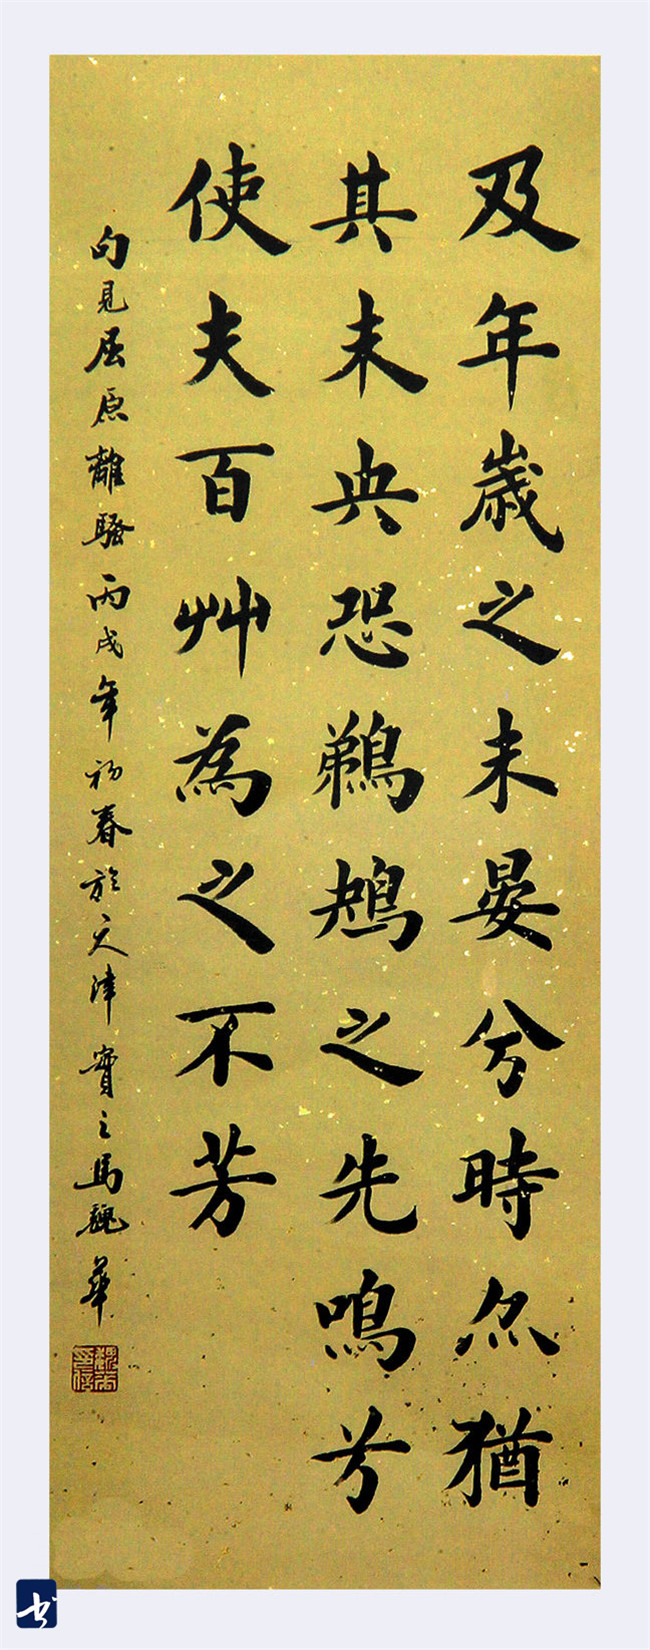 及年歲之未晏兮時亦猶
其未央恐鵜鴂之先鳴兮
使夫百艸為之不芳
句見屈原離騷丙戌年初春於天津寶之馬魏華